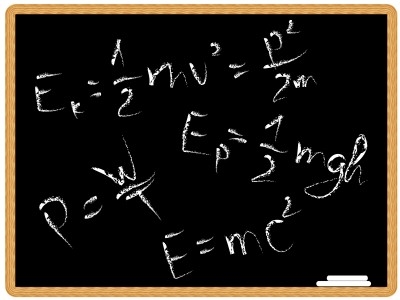 Eₖ = 1/2 mv² = p²/2m
Eₚ = 1/2 mgh
P = W/T
E = mc²